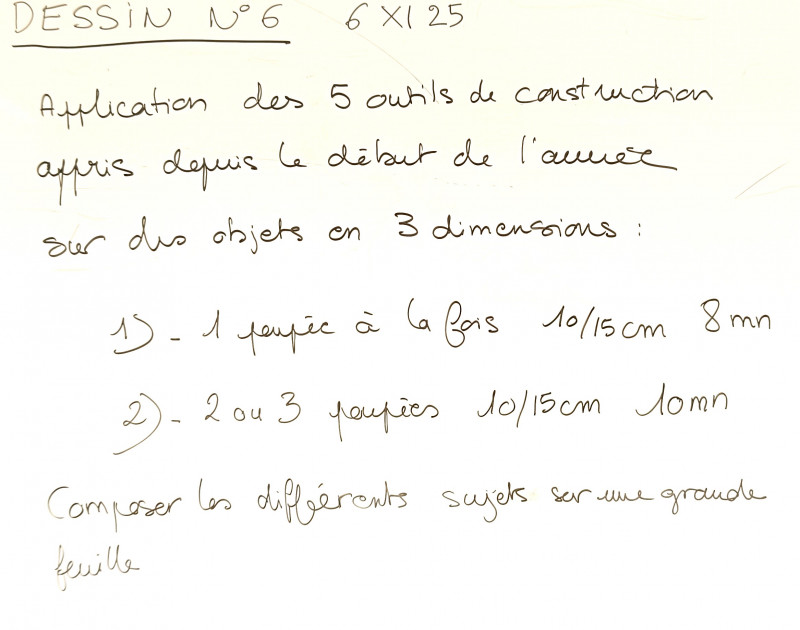 DESSIN N°6 6 XI 25
Application des 5 outils de construction
appris depuis le début de l'année
sur des objets en 3 dimensions :
1) - 1 poupée à la fois 10/15cm 8mn
2) - 2 ou 3 poupées 10/15cm 10mn
Composer les différents sujets sur une grande
feuille